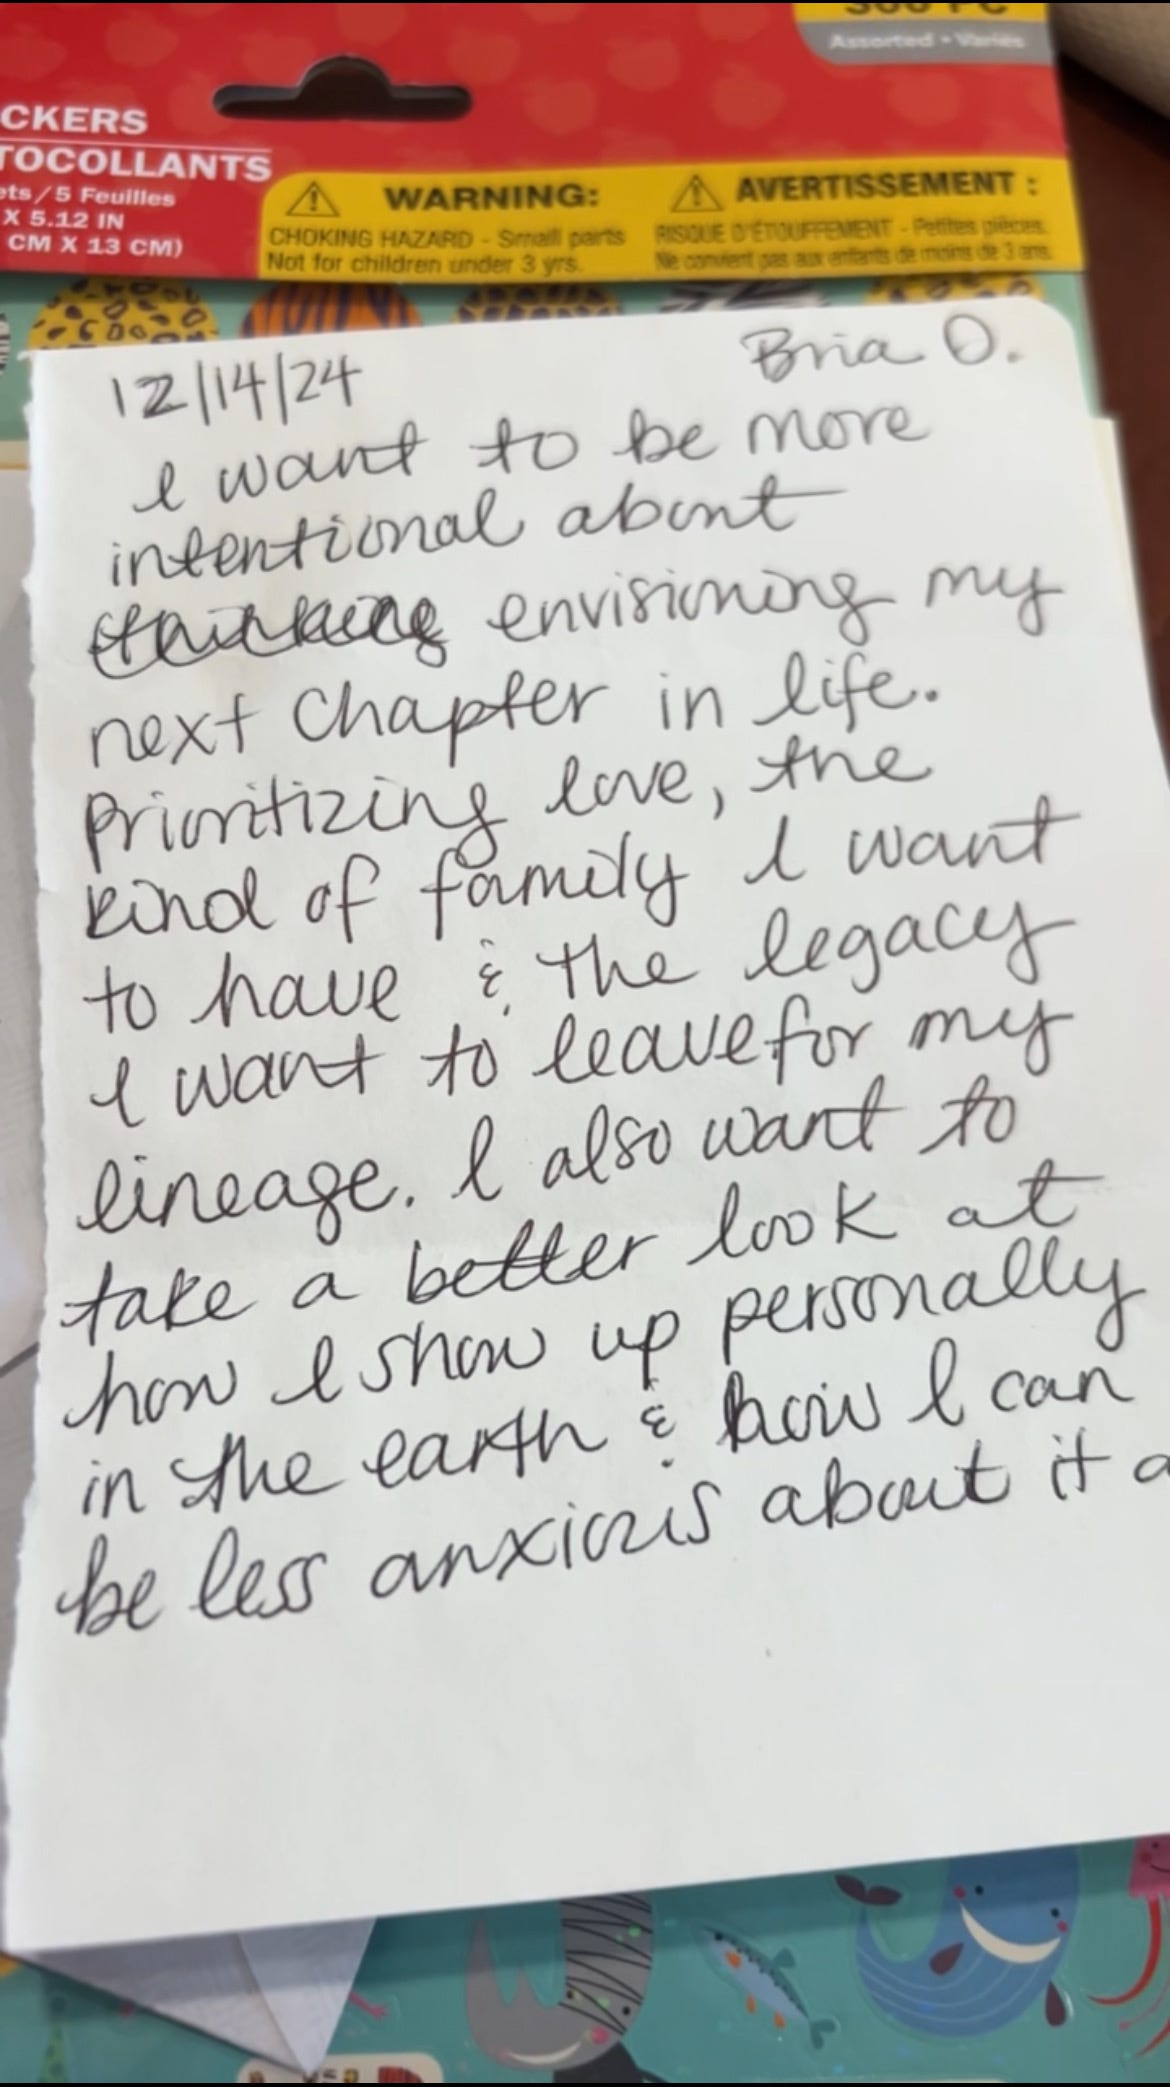 300 PC
Assorted • Variés
CKERS
TOCOLLANTS
ets / 5 Feuilles
X 5.12 IN
CM X 13 CM)
WARNING:
CHOKING HAZARD - Small parts
Not for children under 3 yrs.
AVERTISSEMENT :
RISQUE D'ÉTOUFFEMENT - Petites pièces.
Ne convient pas aux enfants de moins de 3 ans.
12/14/24 Bria O.
I want to be more
intentional about
thinking envisioning my
next chapter in life.
Prioritizing love, the
kind of family I want
to have & the legacy
I want to leave for my
lineage. I also want to
take a better look at
how I show up personally
in the earth & how I can
be less anxious about it a